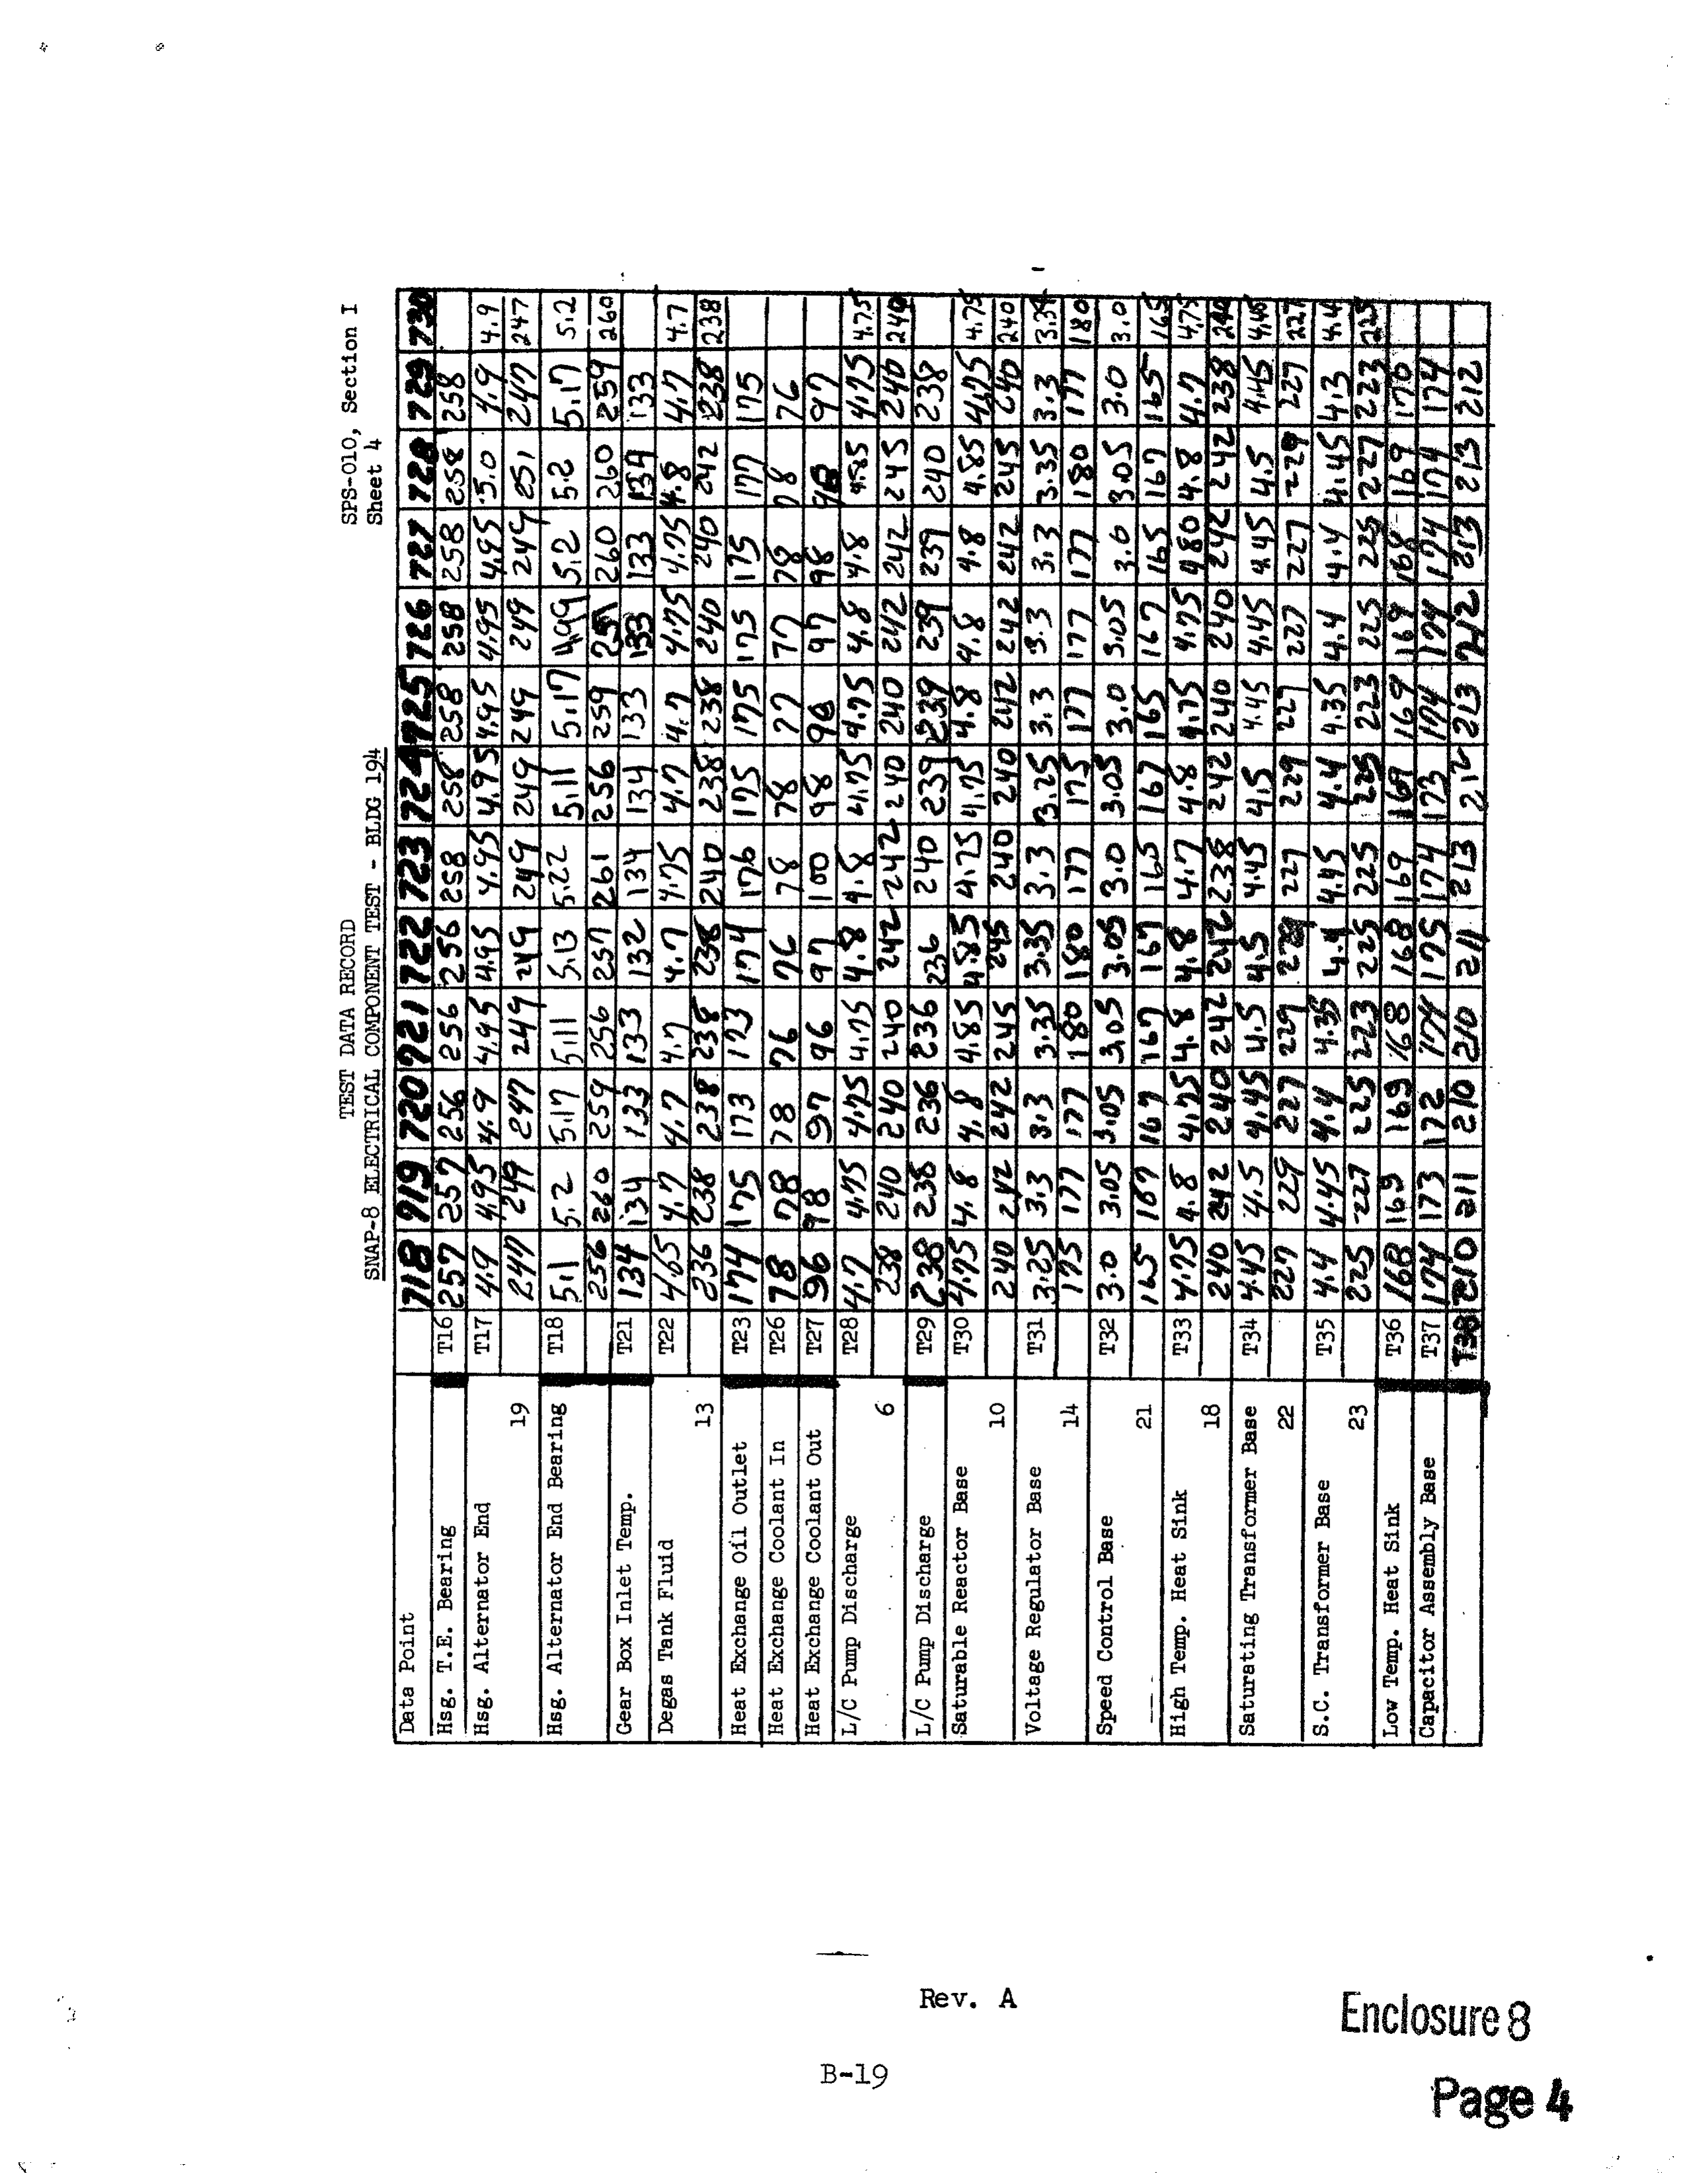 SPS-010, Section I
Sheet 4
TEST DATA RECORD
SNAP-8 ELECTRICAL COMPONENT TEST - BLDG 194
Data Point 718 719 720 721 722 723 724 725 726 727 728 729 730
Hsg. T.E. Bearing T16 257 257 256 256 256 258 258 258 258 258 258 258
Hsg. Alternator End T17 4.9 4.95 4.9 4.95 4.95 4.95 4.95 4.95 4.95 4.95 5.0 4.9 4.9
19 247 249 247 249 249 249 249 249 249 249 251 247 247
Hsg. Alternator End Bearing T18 5.1 5.2 5.17 5.11 5.13 5.22 5.11 5.17 4.99 5.2 5.2 5.17 5.2
256 260 259 256 257 261 256 259 260 260 259 260
Gear Box Inlet Temp. T21 134 134 133 133 132 134 134 133 133 133 134 133
Degas Tank Fluid T22 4.65 4.7 4.7 4.7 4.7 4.75 4.7 4.7 4.75 4.75 4.8 4.7 4.7
13 236 238 238 238 238 240 238 238 240 240 242 238 238
Heat Exchange Oil Outlet T23 174 175 173 173 174 176 175 175 175 175 177 175
Heat Exchange Coolant In T26 78 78 78 76 76 78 78 77 77 78 78 76
Heat Exchange Coolant Out T27 96 98 97 96 97 100 98 98 97 98 98 97
L/C Pump Discharge T28 4.7 4.75 4.75 4.75 4.8 4.8 4.75 4.75 4.8 4.8 4.85 4.75 4.75
6 238 240 240 240 242 242 240 240 242 242 245 240 240
L/C Pump Discharge T29 238 238 236 236 236 240 239 239 239 239 240 238
Saturable Reactor Base T30 4.75 4.8 4.8 4.85 4.85 4.75 4.75 4.8 4.8 4.8 4.85 4.75 4.75
10 240 242 242 245 245 240 240 242 242 242 245 240 240
Voltage Regulator Base T31 3.25 3.3 3.3 3.35 3.35 3.3 3.25 3.3 3.3 3.3 3.35 3.3 3.35
14 175 177 177 180 180 177 175 177 177 177 180 177 180
Speed Control Base T32 3.0 3.05 3.05 3.05 3.05 3.0 3.05 3.0 3.05 3.0 3.05 3.0 3.0
21 165 167 167 167 167 165 167 165 167 165 167 165 165
High Temp. Heat Sink T33 4.75 4.8 4.75 4.8 4.8 4.7 4.8 4.75 4.75 4.80 4.8 4.7 4.75
18 240 242 240 242 242 238 242 240 240 242 242 238 240
Saturating Transformer Base T34 4.45 4.5 4.45 4.5 4.5 4.45 4.5 4.45 4.45 4.45 4.5 4.45 4.45
22 227 229 227 229 229 227 229 227 227 227 229 227 227
S.C. Transformer Base T35 4.4 4.45 4.4 4.35 4.4 4.45 4.4 4.35 4.4 4.4 4.45 4.3 4.4
23 225 227 225 223 225 225 225 223 225 225 227 223 225
Low Temp. Heat Sink T36 168 169 169 168 168 169 169 169 169 168 169 170
Capacitor Assembly Base T37 174 173 172 174 175 174 173 174 174 174 174 174
T38 210 211 210 210 211 213 212 213 212 213 213 212
Rev. A
B-19
Enclosure 8
Page 4